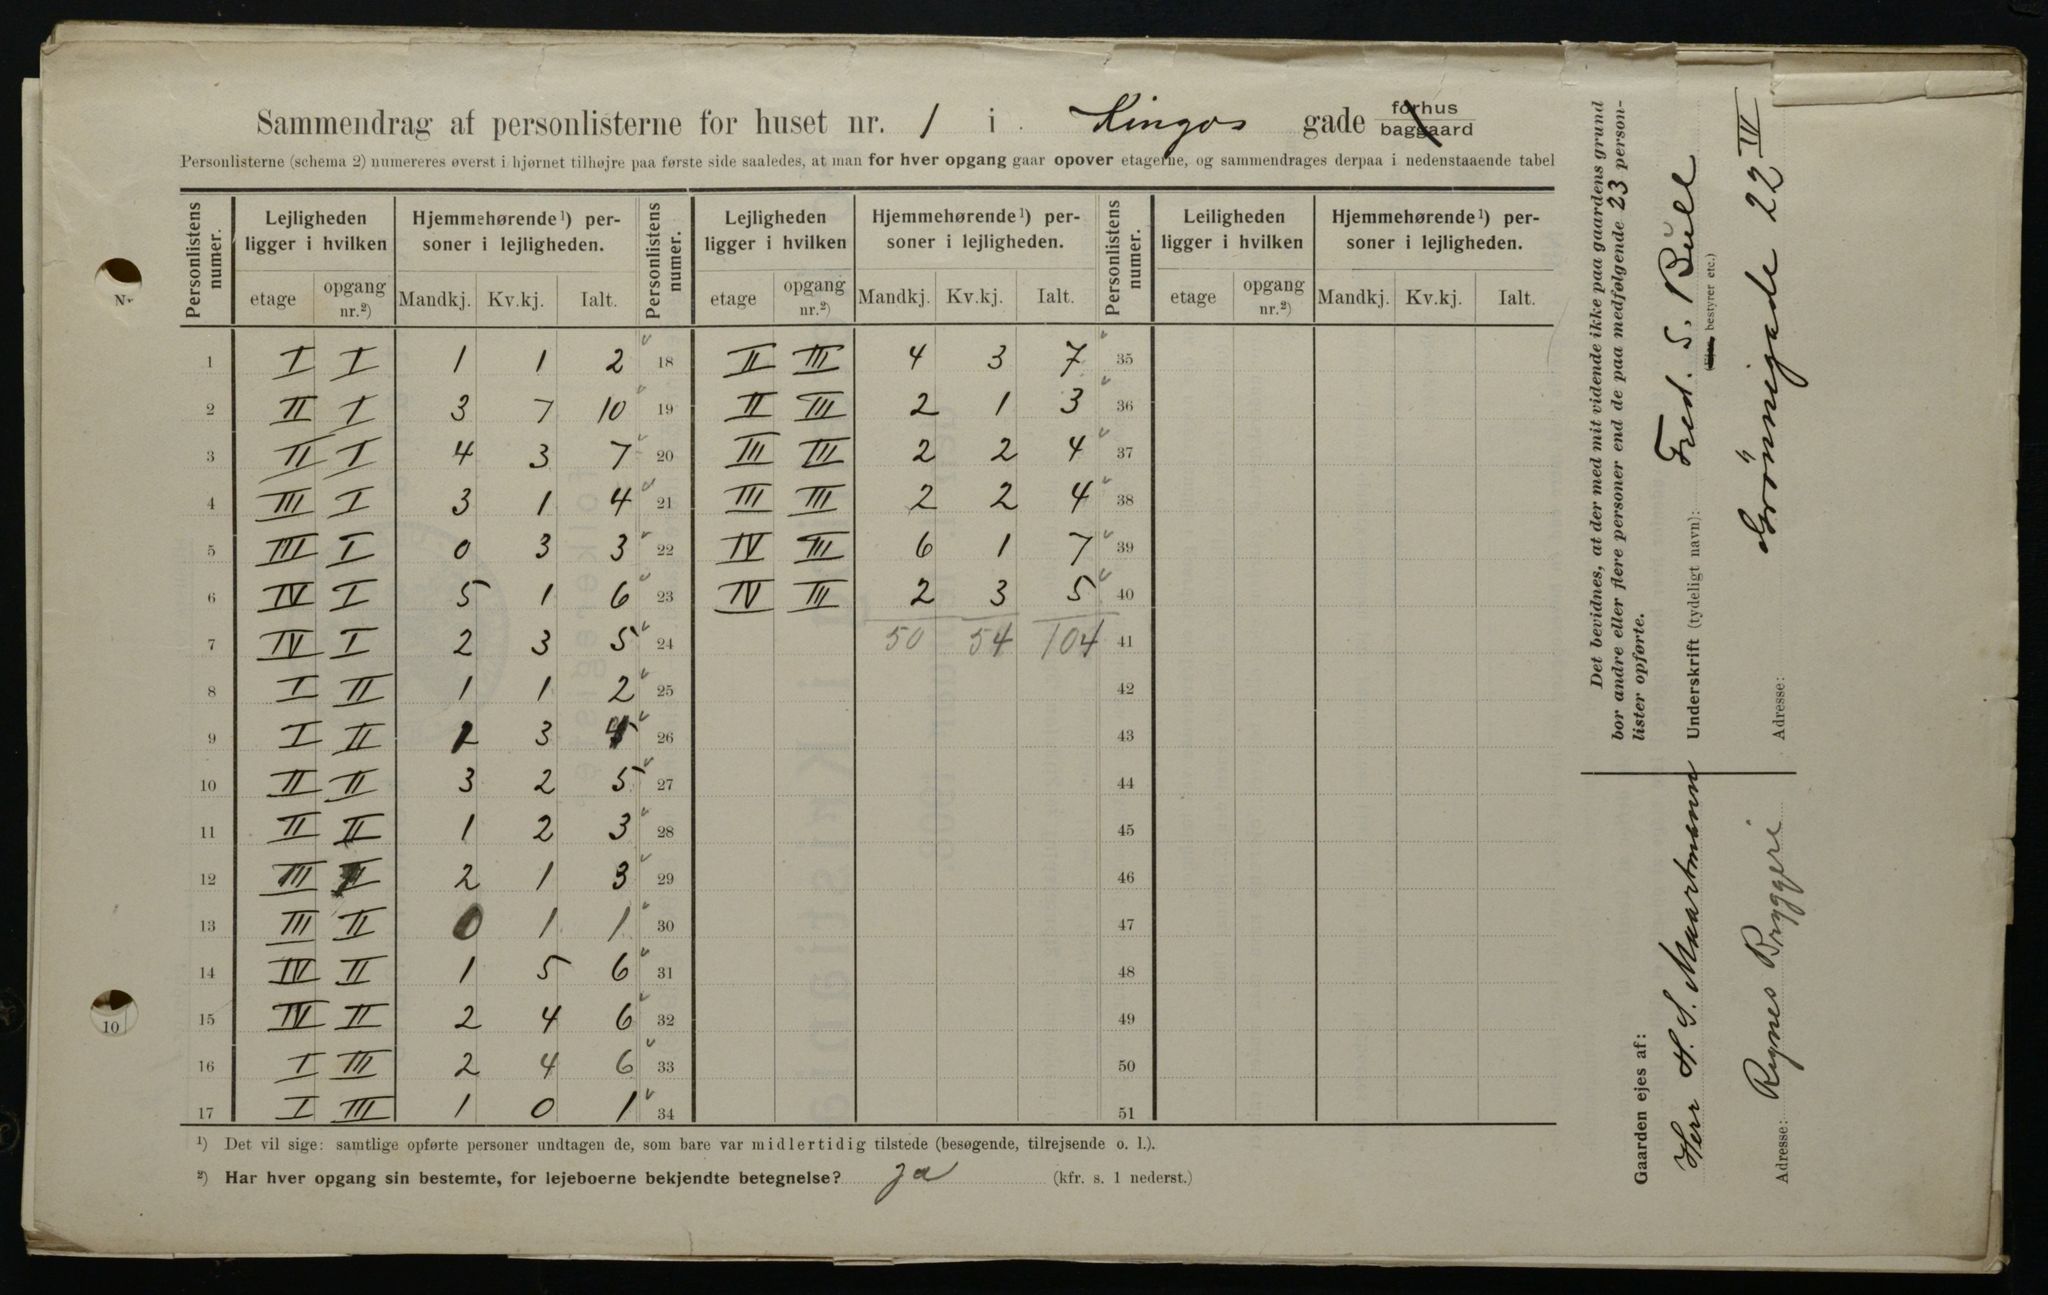 Sammendrag af personlisterne for huset nr. 1 i Kingos gade forhus baggaard
Personlisterne (schema 2) numereres øverst i hjørnet tilhøjre paa første side saaledes, at man for hver opgang gaar opover etagerne, og sammendrages derpaa i nedenstaaende tabel
Personlistens numer. Lejligheden ligger i hvilken Hjemmehørende¹) personer i lejligheden. Personlistens numer. Lejligheden ligger i hvilken Hjemmehørende¹) personer i lejligheden. Personlistens numer. Leiligheden ligger i hvilken Hjemmehørende¹) personer i lejligheden.
etage opgang nr.²) Mandkj. Kv.kj. Ialt. etage opgang nr.²) Mandkj. Kv.kj. Ialt. etage opgang nr.²) Mandkj. Kv.kj. Ialt.
1 I I 1 1 2 18 II III 4 3 7 35
2 II I 3 7 10 19 II III 2 1 3 36
3 II I 4 3 7 20 III III 2 2 4 37
4 III I 3 1 4 21 III III 2 2 4 38
5 III I 0 3 3 22 IV III 6 1 7 39
6 IV I 5 1 6 23 IV III 2 3 5 40
7 IV I 2 3 5 24 50 54 104 41
8 I II 1 1 2 25 42
9 I II 2 3 5 26 43
10 II II 3 2 5 27 44
11 II II 1 2 3 28 45
12 III II 2 1 3 29 46
13 III II 0 1 1 30 47
14 IV II 1 5 6 31 48
15 IV II 2 4 6 32 49
16 I III 2 4 6 33 50
17 I III 1 0 1 34 51
¹) Det vil sige: samtlige opførte personer undtagen de, som bare var midlertidig tilstede (besøgende, tilrejsende o. l.).
²) Har hver opgang sin bestemte, for lejeboerne bekjendte betegnelse? ja (kfr. s. 1 nederst.)
Det bevidnes, at der med mit vidende ikke paa gaardens grund
bor andre eller flere personer end de paa medfølgende 23 person-
lister opførte.
Underskrift (tydeligt navn): Fred. S. Bull
(Ejer, bestyrer etc.)
Adresse: Grönnegade 22 IV
Gaarden ejes af:
Herr H. S. Maartmann
Adresse: Rynes Bryggeri
10